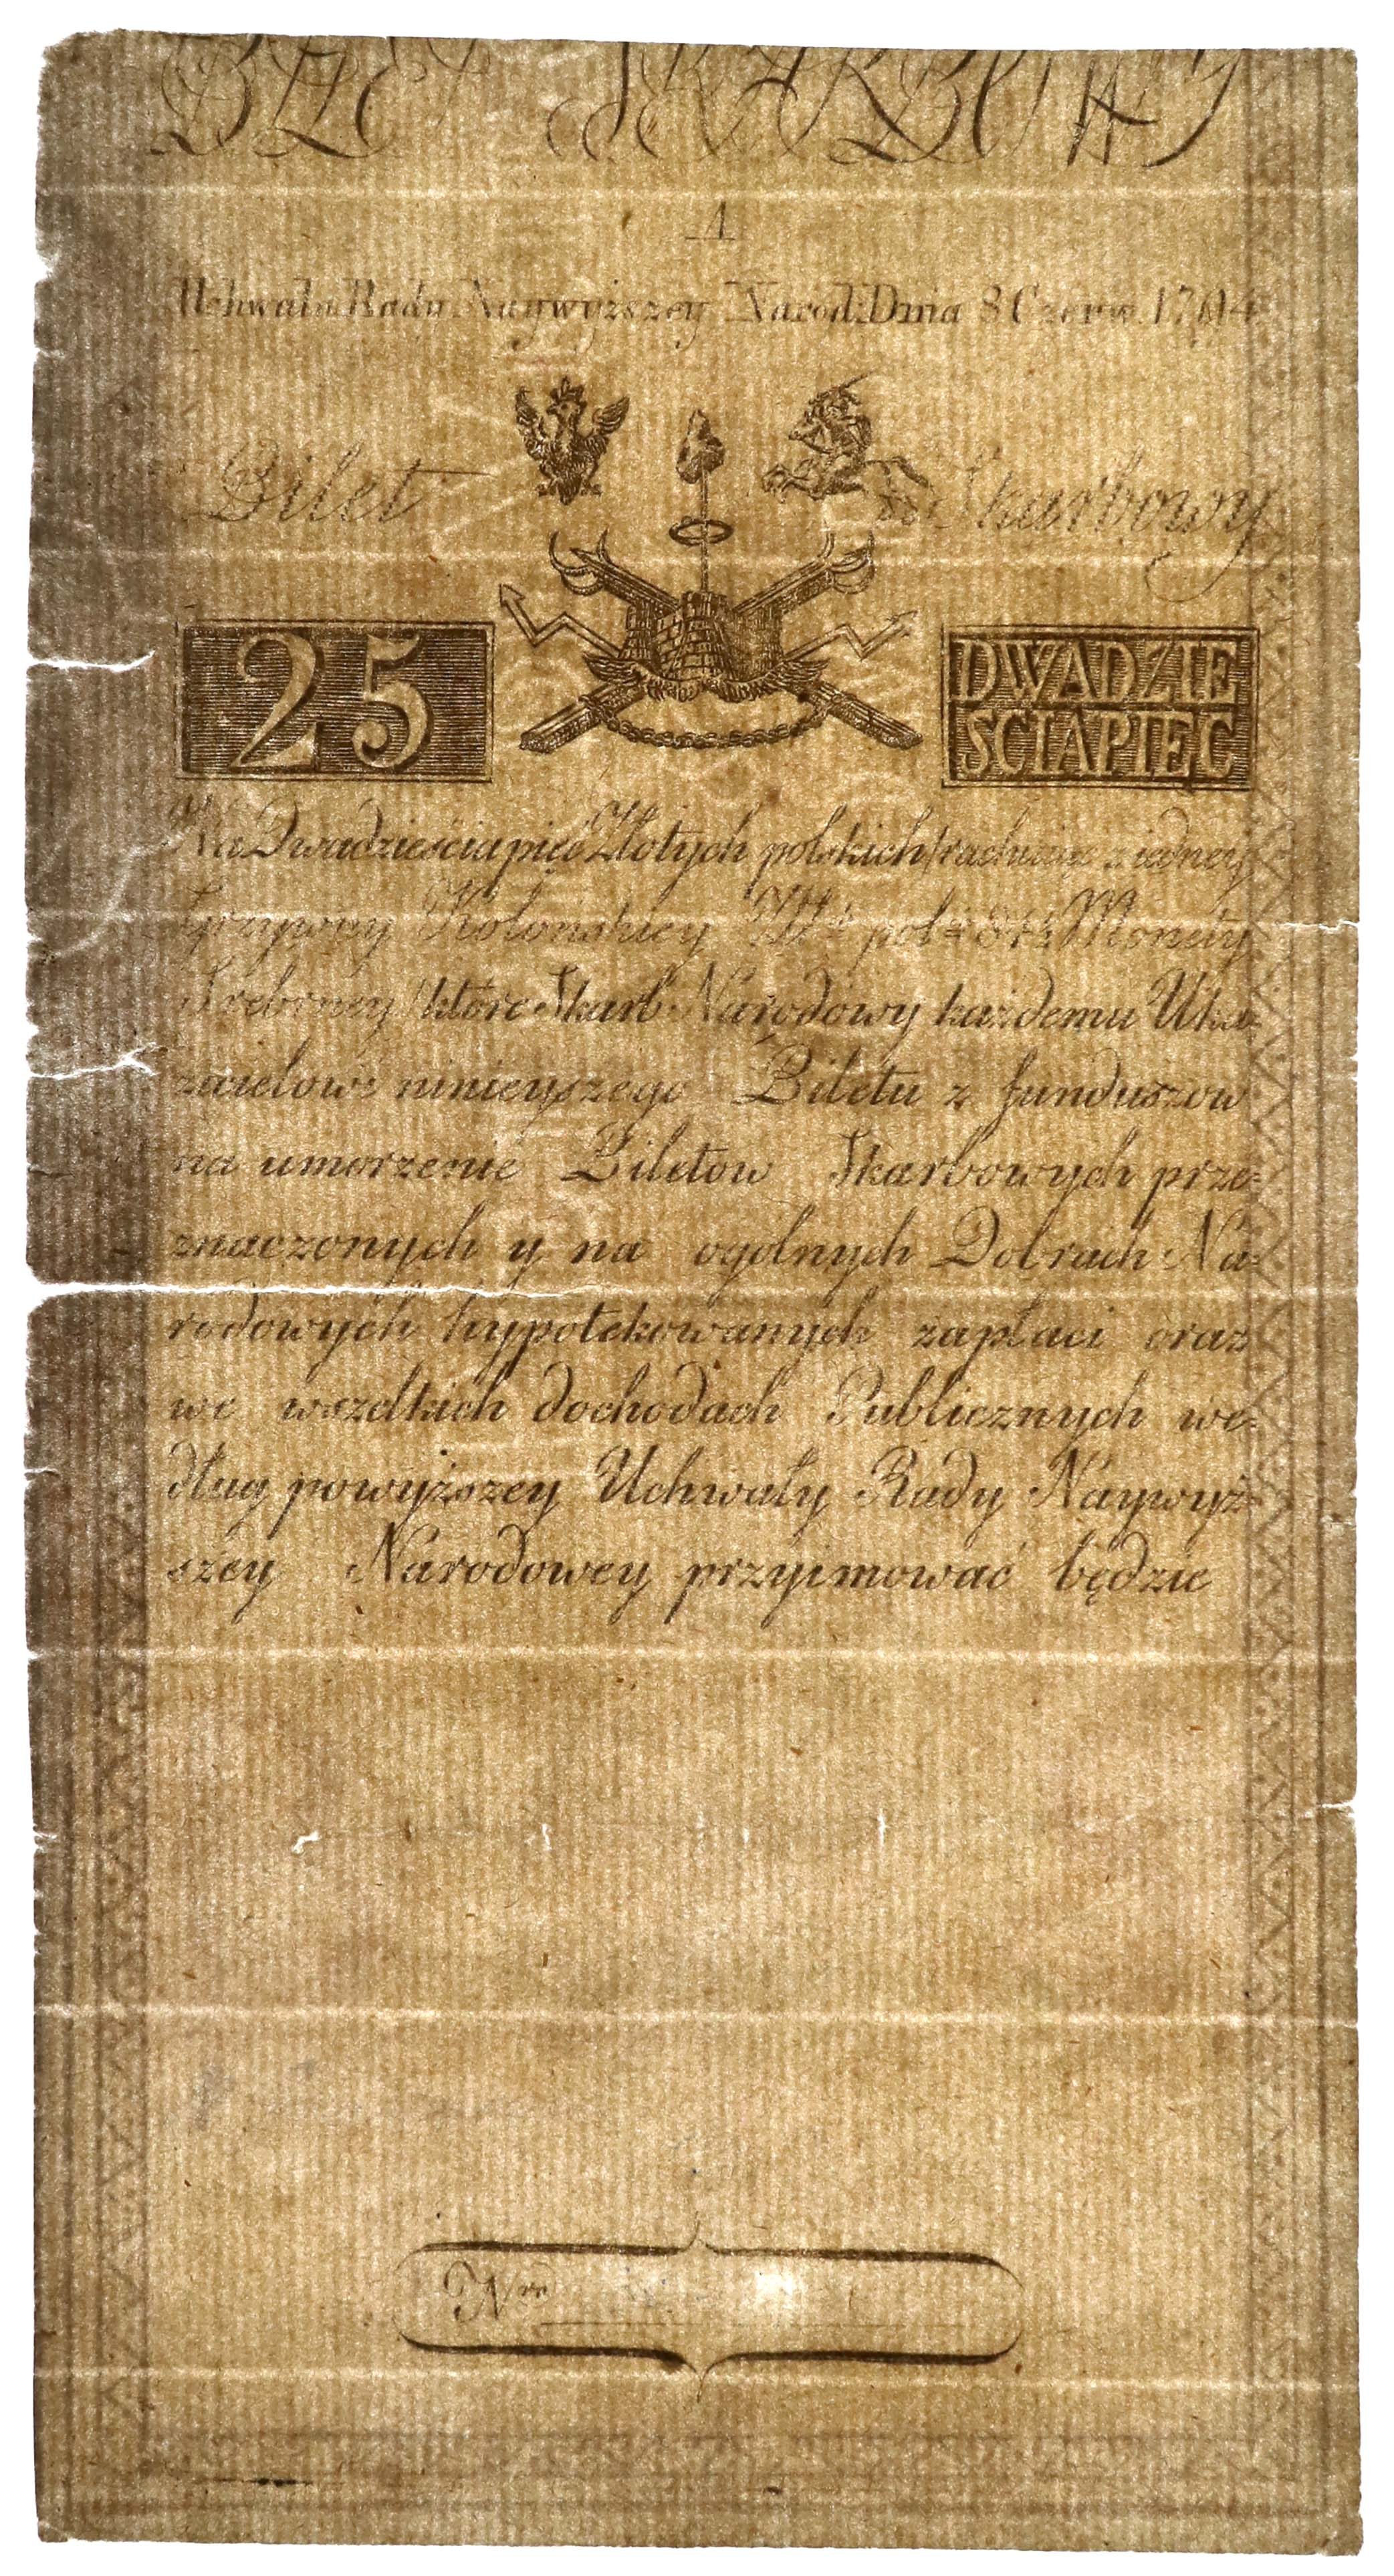 BILET SKARBOWY
A
Uchwała Rady Naywyższey Narod: Dnia 8 Czerw. 1794
Bilet Skarbowy
25
DWADZIE
SCIAPIEC
Na Dwadzieściapięć Złotych polskich rachuiąc z iedney
Grzywny Kolońskiey Zł: pol: 84½ Monety
Srebrney które Skarb Narodowy każdemu Uka=
zicielowi ninieyszego Biletu z funduszow
na umorzenie Biletow Skarbowych prze=
znaczonych y na ogolnych Dobrach Na=
rodowych hypotekowanych zapłaci oraz
we wszelkich dochodach Publicznych we=
dług powyższey Uchwały Rady Naywyż=
szey Narodowey przyimować będzie
Nro